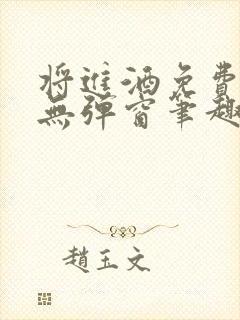 將進酒免費
無彈窗筆趣
趙玉文